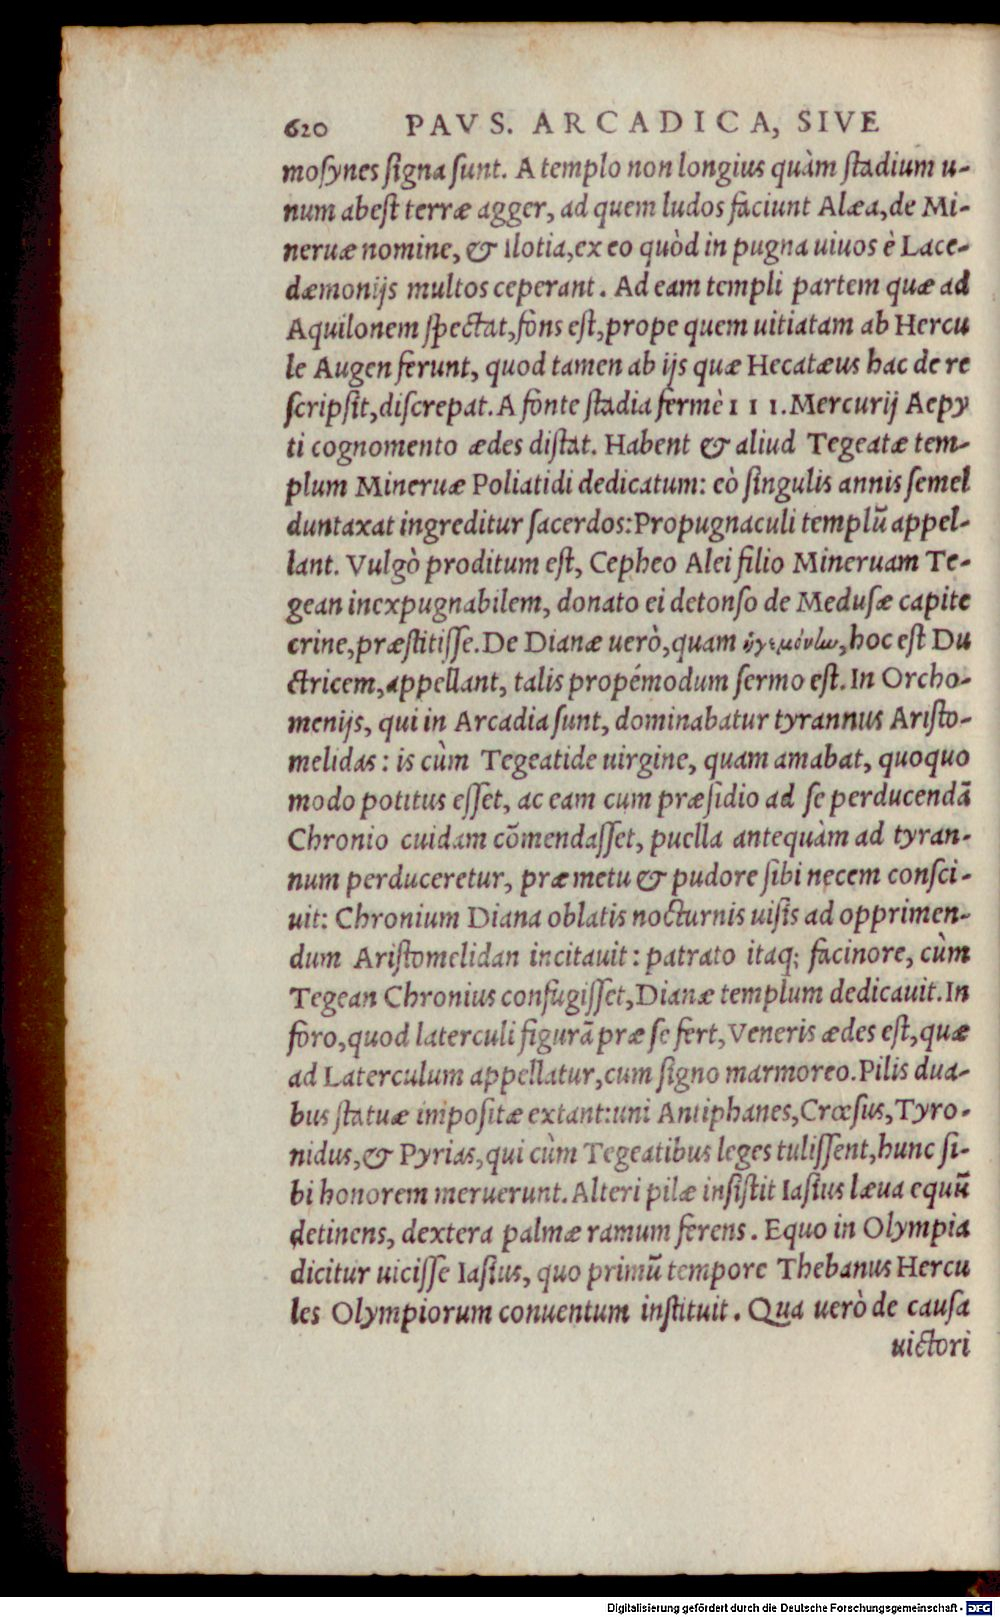 620 PAVS. ARCADICA, SIVE
mosynes signa sunt. A templo non longius quàm stadium u-
num abest terræ agger, ad quem ludos faciunt Alæa, de Mi-
neruæ nomine, & Ilotia, ex eo quòd in pugna uiuos è Lace-
dæmonijs multos ceperant. Ad eam templi partem quæ ad
Aquilonem spectat, fons est, prope quem uitiatam ab Hercu
le Augen ferunt, quod tamen ab ijs quæ Hecatæus hac de re
scripsit, discrepat. A fonte stadia fermè III. Mercurij Aepy
ti cognomento ædes distat. Habent & aliud Tegeatæ tem-
plum Mineruæ Poliatidi dedicatum: eò singulis annis semel
duntaxat ingreditur sacerdos: Propugnaculi templũ appel-
lant. Vulgò proditum est, Cepheo Alei filio Mineruam Te-
gean inexpugnabilem, donato ei detonso de Medusæ capite
crine, præstitisse. De Dianæ uerò, quam ἡγεμόνην, hoc est Du
ctricem, appellant, talis propémodum sermo est. In Orcho-
menijs, qui in Arcadia sunt, dominabatur tyrannus Aristo-
melidas: is cùm Tegeatide uirgine, quam amabat, quoquo
modo potitus esset, ac eam cum præsidio ad se perducendã
Chronio cuidam cõmendasset, puella antequàm ad tyran-
num perduceretur, præ metu & pudore sibi necem consci-
uit: Chronium Diana oblatis nocturnis uisis ad opprimen-
dum Aristomelidan incitauit: patrato itaq; facinore, cùm
Tegean Chronius confugisset, Dianæ templum dedicauit. In
foro, quod laterculi figurã præ se fert, Veneris ædes est, quæ
ad Laterculum appellatur, cum signo marmoreo. Pilis dua-
bus statuæ impositæ extant: uni Antiphanes, Crœsus, Tyro-
nidus, & Pyrias, qui cùm Tegeatibus leges tulissent, hunc si-
bi honorem meruerunt. Alteri pilæ insistit Iasius læua equũ
detinens, dextera palmæ ramum ferens. Equo in Olympia
dicitur uicisse Iasius, quo primũ tempore Thebanus Hercu
les Olympiorum conuentum instituit. Qua uerò de causa
uictori
Digitalisierung gefördert durch die Deutsche Forschungsgemeinschaft - DFG